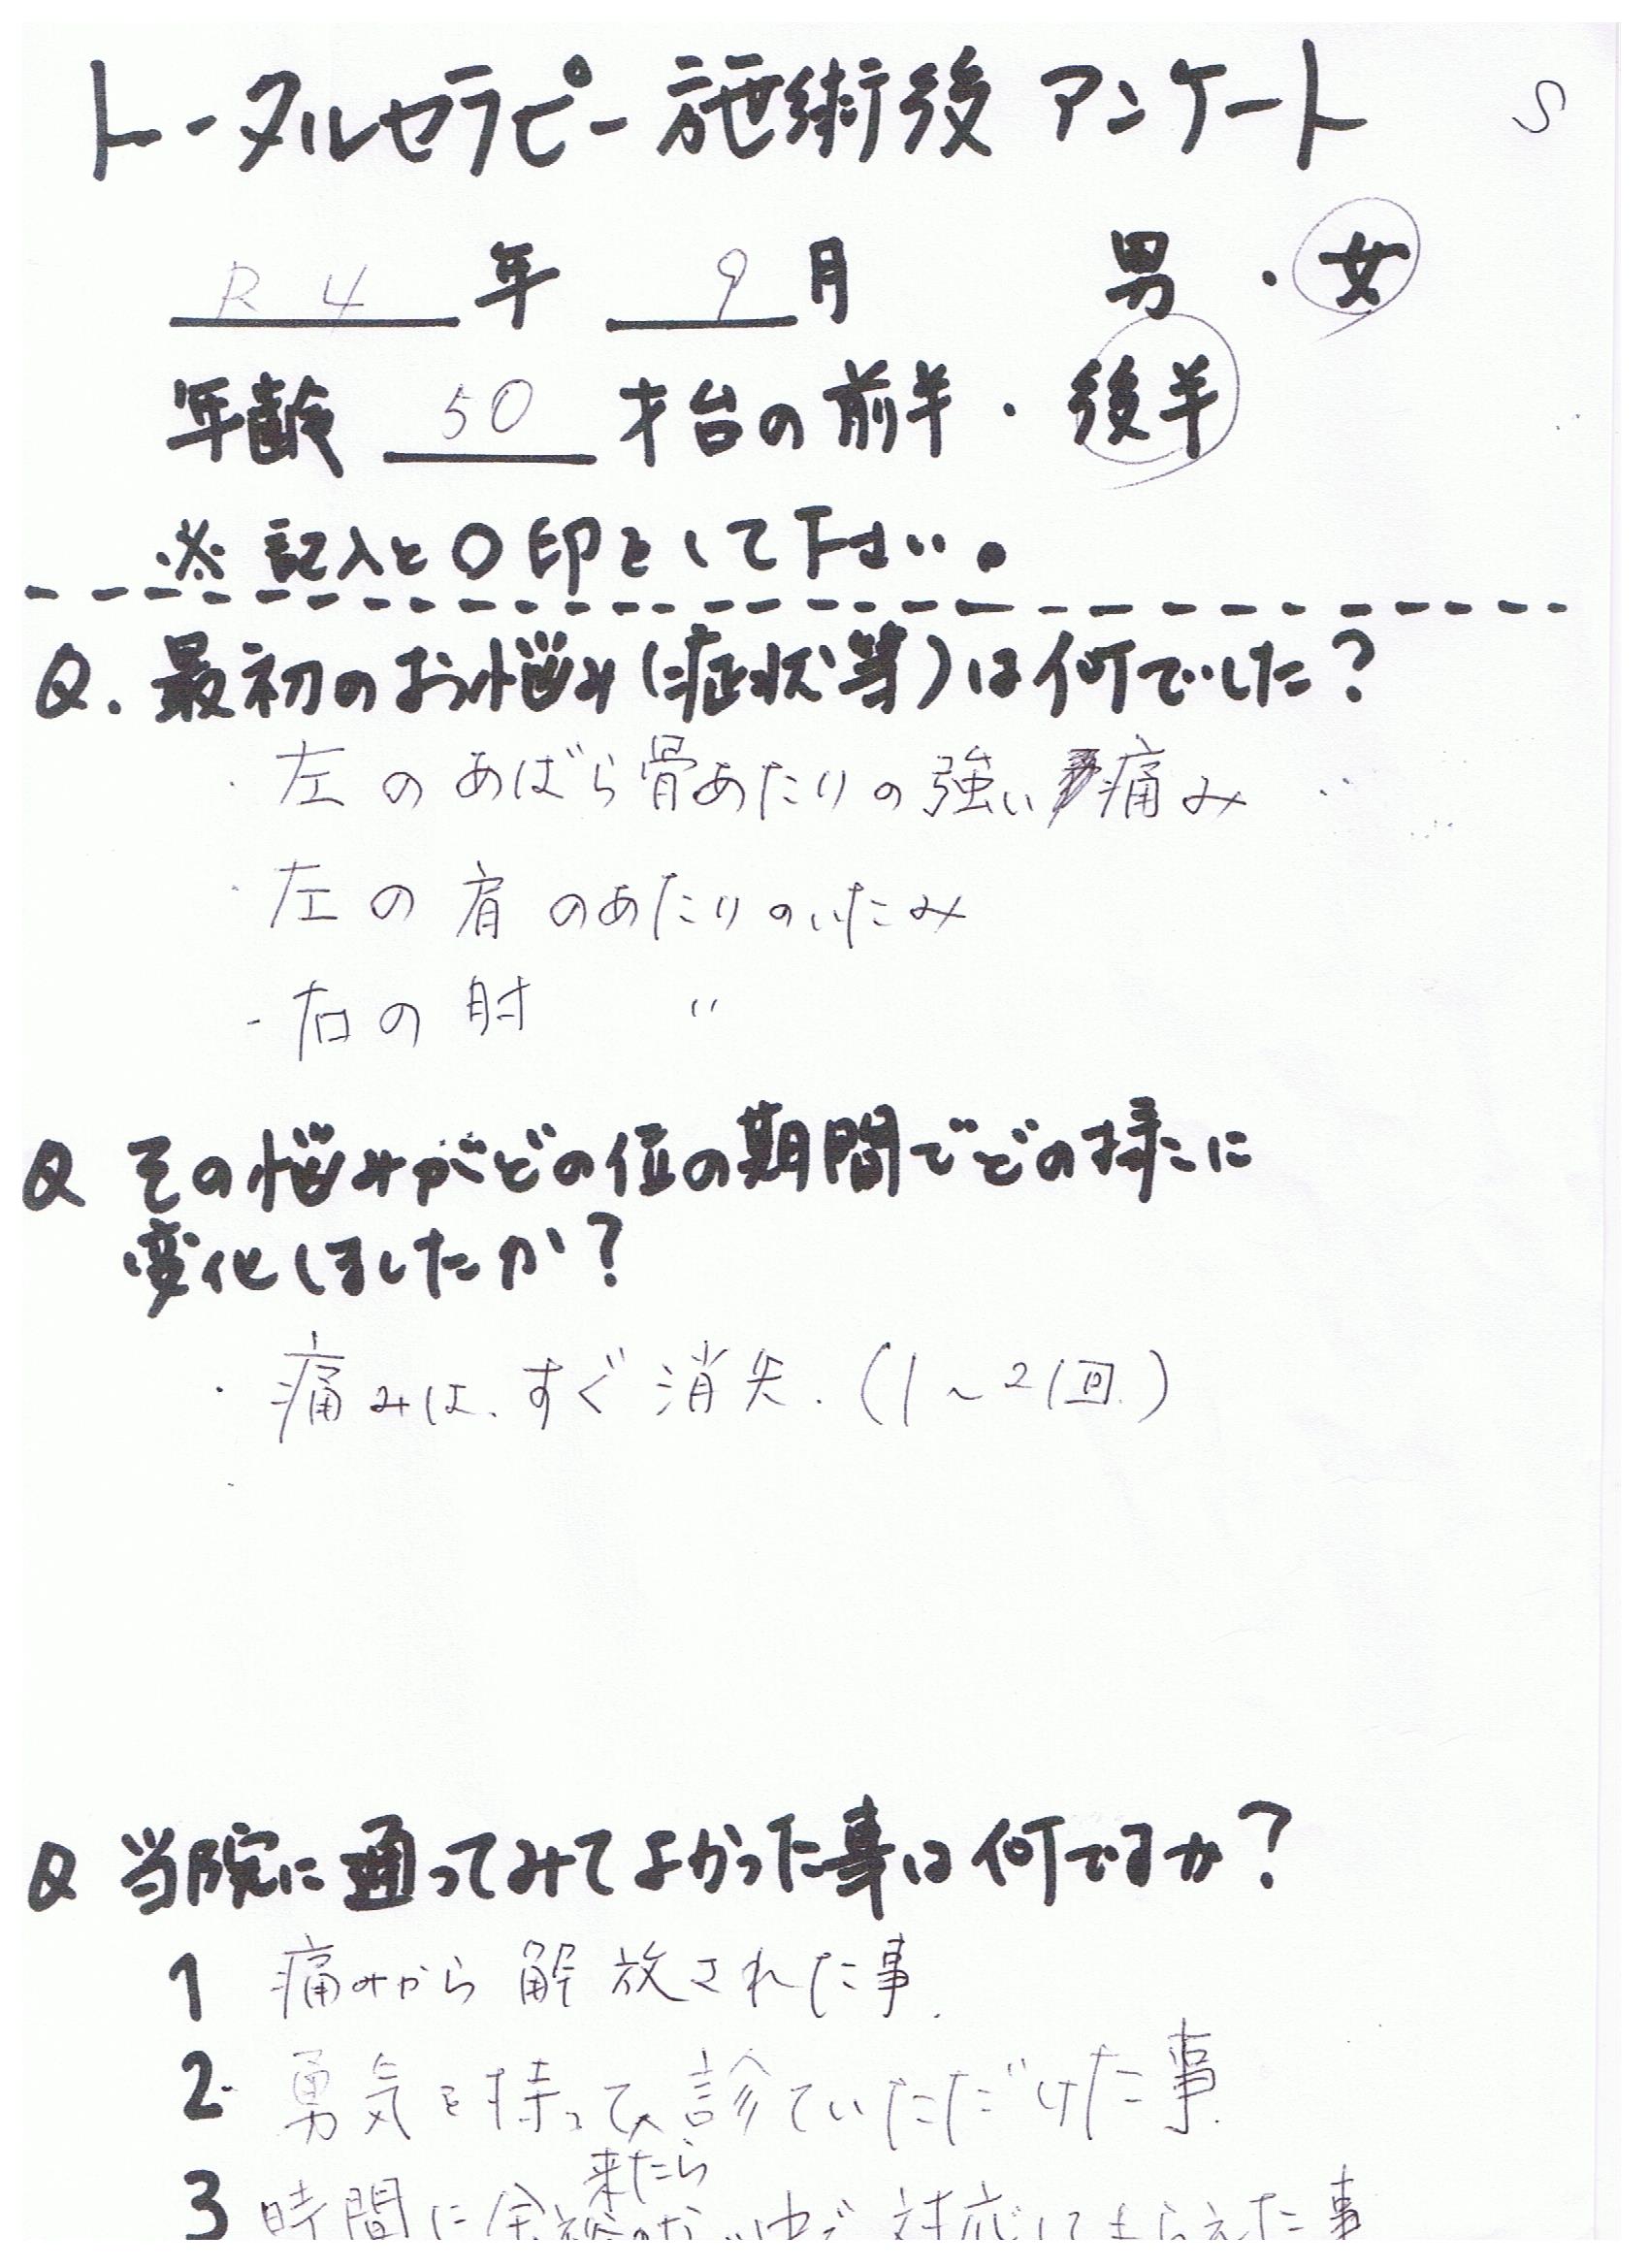 トータルセラピー施術後アンケート S
R 4 年 9 月 男・女
年齢 50 才台の前半・後半
※記入と〇印をして下さい。
Q.最初のお悩み(症状等)は何でした?
・左のあばら骨あたりの強い痛み
・左の肩のあたりのいたみ
-右の肘 〃
Q その悩みがどの位の期間でどの様に
変化しましたか?
・痛みは、すぐ消失.(1~2回.)
Q 当院に通ってみてよかった事は何ですか?
1 痛みから解放された事.
2 勇気を持って診ていただけた事.
来たら
3 時間に余裕のない中で対応してもらえた事